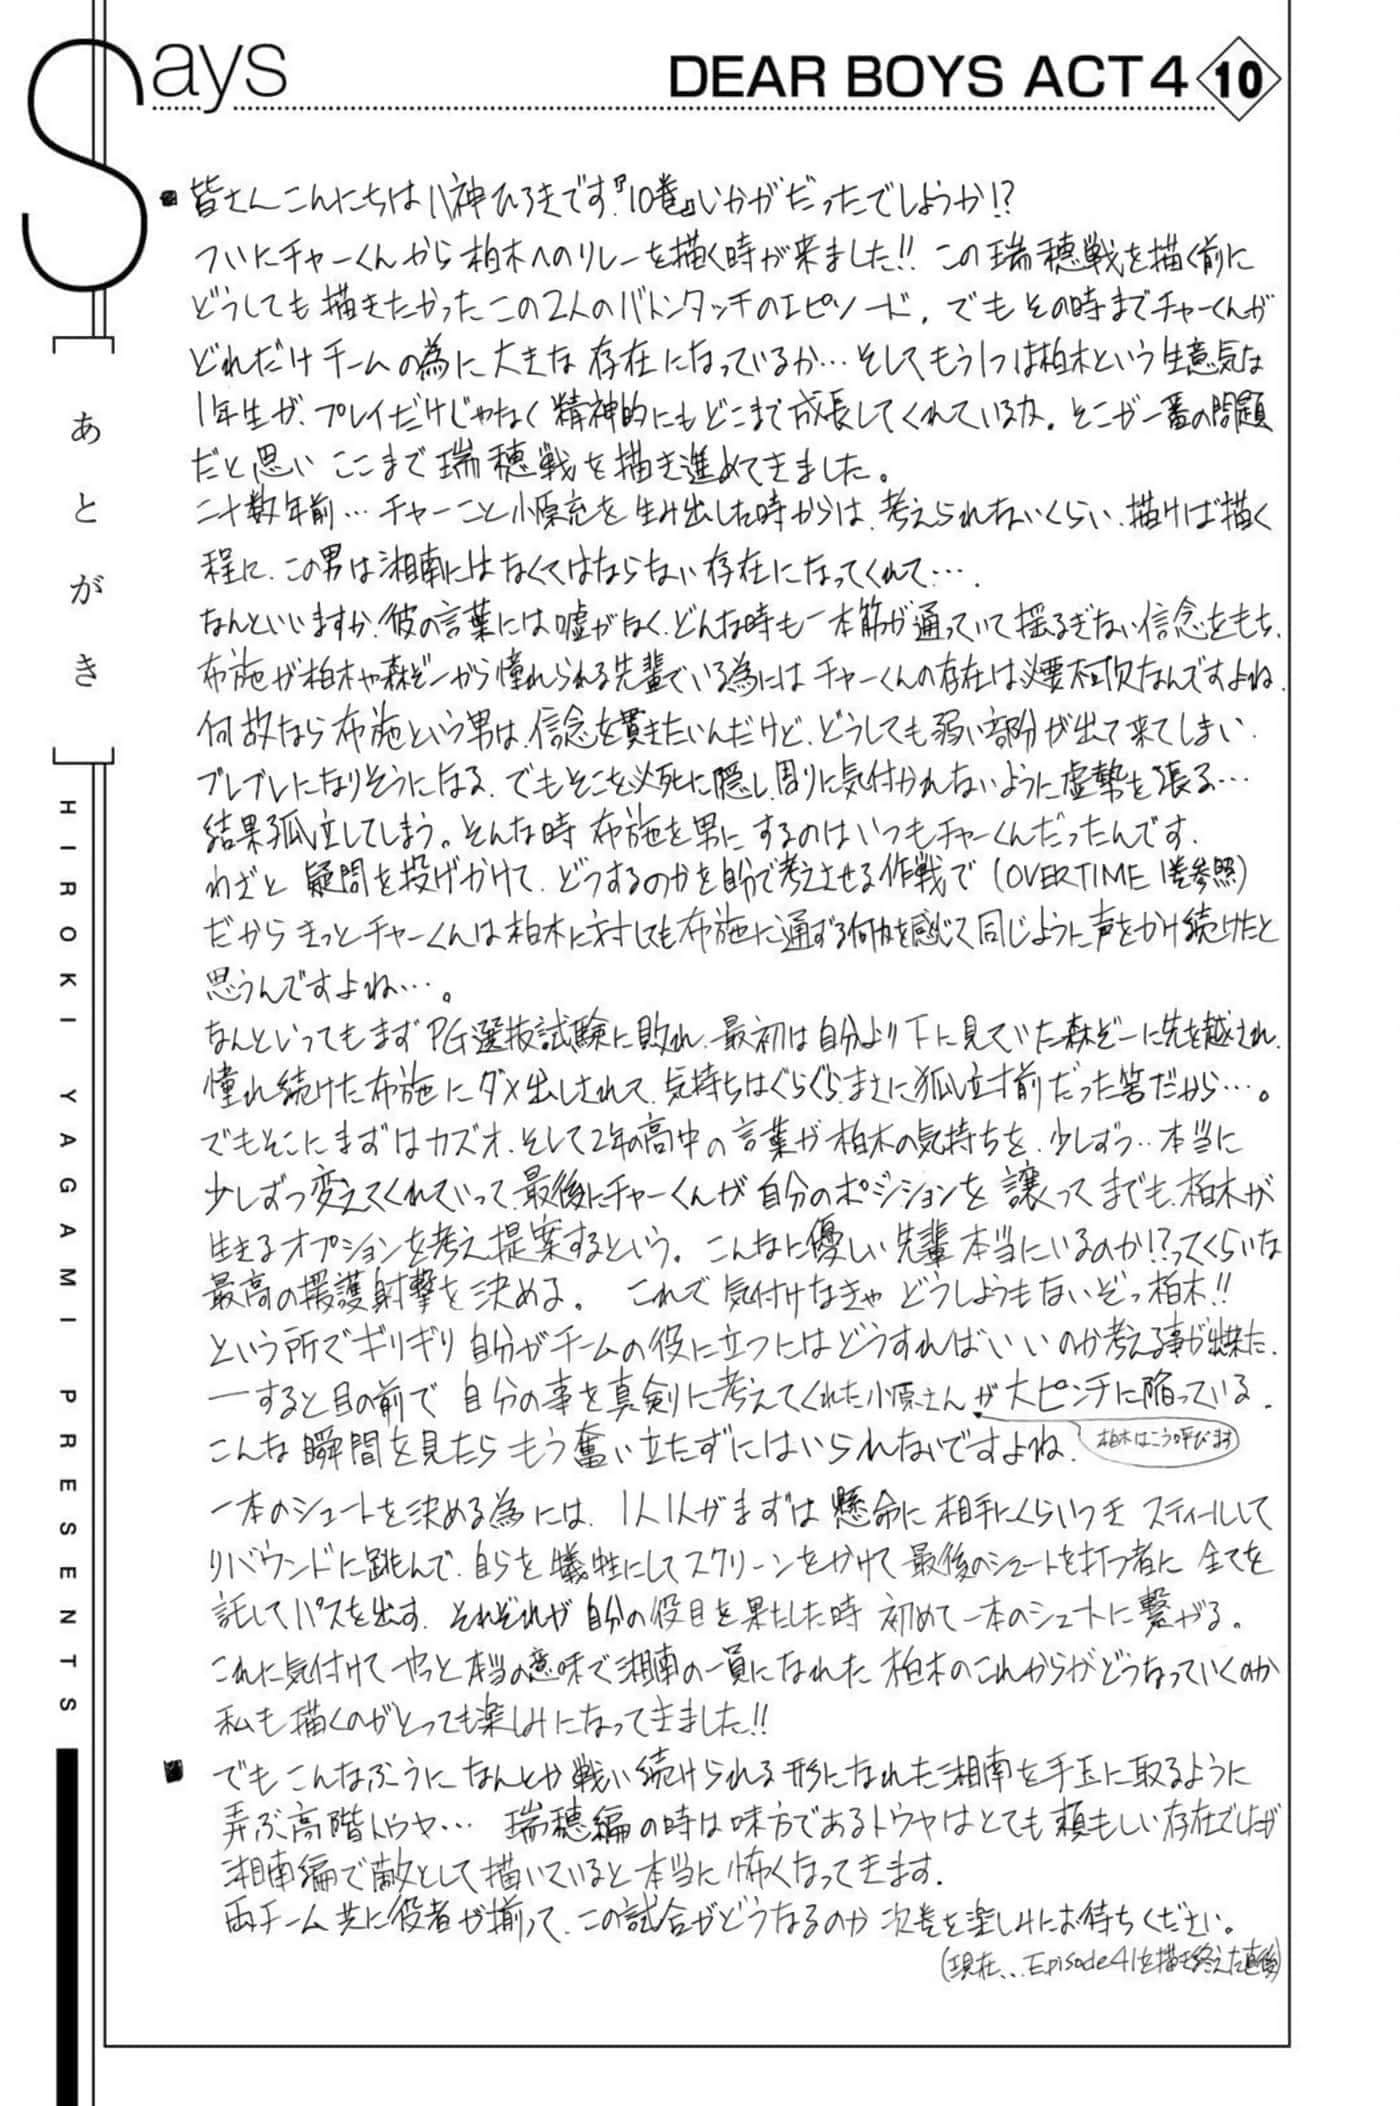 Says
DEAR BOYS ACT4 10
[あとがき] HIROKI YAGAMI PRESENTS
■皆さんこんにちは八神ひろきです。『10巻』いかがだったでしょうか!?
ついにチャーくんから柏木へのリレーを描く時が来ました!! この瑞穂戦を描く前に
どうしても描きたかったこの2人のバトンタッチのエピソード、でもその時までチャーくんが
どれだけチームの為に大きな存在になっているか…そしてもう1つは柏木という生意気な
1年生が、プレイだけじゃなく精神的にもどこまで成長してくれているか。そこが一番の問題
だと思いここまで瑞穂戦を描き進めてきました。
二十数年前…チャーこと小原充を生み出した時からは、考えられないくらい、描けば描く
程に、この男は湘南にはなくてはならない存在になってくれて….
なんといいますか、彼の言葉には嘘がなく、どんな時も一本筋が通っていて揺るぎない信念をもち、
布施が柏木や森ぞーから憧れられる先輩でいる為にはチャーくんの存在は必要不可欠なんですよね.
何故なら布施という男は、信念を貫きたいんだけど、どうしても弱い部分が出て来てしまい、
ブレブレになりそうになる、でもそこを必死に隠し、周りに気付かれないように虚勢を張る…
結果孤立してしまう。そんな時布施を男にするのはいつもチャーくんだったんです.
わざと疑問を投げかけて、どうするのかを自分で考えさせる作戦で(OVERTIME 1巻参照)
だからきっとチャーくんは柏木に対しても布施に通ずる何かを感じて同じように声をかけ続けたと
思うんですよね…。
なんといってもまずPG選抜試験に敗れ、最初は自分より下に見ていた森ぞーに先を越され、
憧れ続けた布施にダメ出しされて、気持ちはぐらぐら、まさに孤立寸前だった筈だから…。
でもそこにまずはカズオ、そして2年の高中の言葉が柏木の気持ちを、少しずつ…本当に
少しずつ変えてくれていって、最後にチャーくんが自分のポジションを譲ってまでも、柏木が
生きるオプションを考え提案するという。こんなに優しい先輩本当にいるのか!?ってくらいな
最高の援護射撃を決める。 これで気付けなきゃどうしようもないぞっ柏木!!
という所でギリギリ自分がチームの役に立つにはどうすればいいのか考える事が出来た、
ーすると目の前で自分の事を真剣に考えてくれた小原さんが大ピンチに陥っている.
こんな瞬間を見たらもう奮い立たずにはいられないですよね.
柏木はこう呼びます
一本のシュートを決める為には、1人1人がまずは懸命に相手にくらいつきスティールして
リバウンドに跳んで、自らを犠牲にしてスクリーンをかけて最後のシュートを打つ者に全てを
託してパスを出す、それぞれが自分の役目を果たした時初めて一本のシュートに繋がる。
これに気付けてやっと本当の意味で湘南の一員になれた柏木のこれからがどうなっていくのか
私も描くのがとっても楽しみになってきました!!
■でもこんなふうになんとか戦い続けられる形になれた湘南を手玉に取るように
弄ぶ高階トウヤ… 瑞穂編の時は味方であるトウヤはとても頼もしい存在でしたが
湘南編で敵として描いていると本当に怖くなってきます.
両チーム共に役者が揃って、この試合がどうなるのか次巻を楽しみにお待ちください。
(現在...Episode41を描き終えた直後)